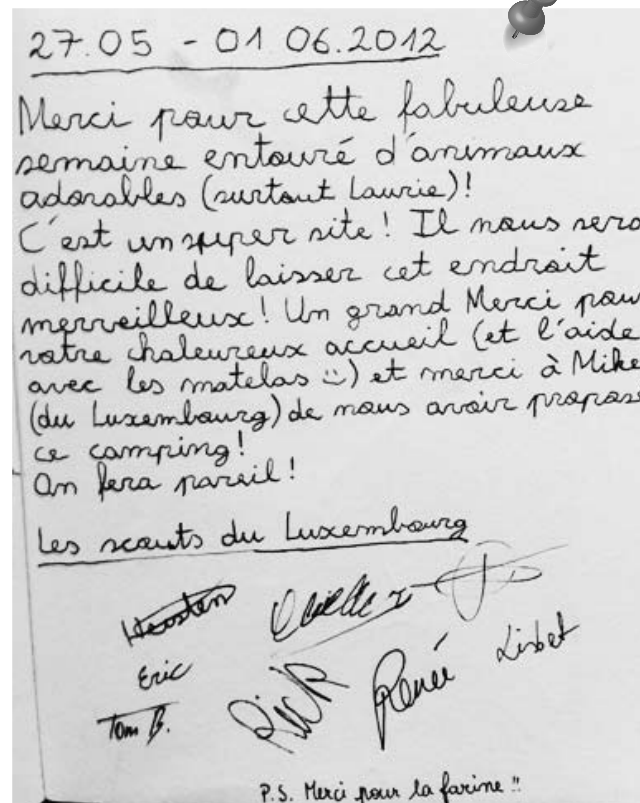 27.05 - 01 06.2012
Merci pour cette fabuleuse
semaine entouré d'animaux
adorables (surtout Laurie)!
C'est un super site! Il nous sera
difficile de laisser cet endroit
merveilleux! Un grand Merci pour
votre chaleureux accueil (et l'aide
avec les matelas :)) et merci à Mike
(du Luxembourg) de nous avoir proposé
ce camping!
On fera pareil!
Les scouts du Luxembourg
Eric
Tom B.
Rick
Renée
Lisbet
P.S. Merci pour la farine !!